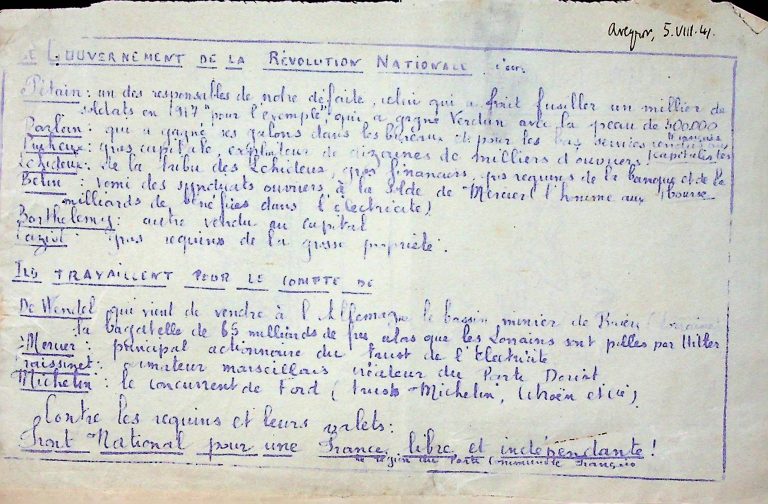 Aveyron, 5.VIII.41.
Le Gouvernement de la Révolution Nationale, c'est
Pétain : un des responsables de notre défaite, celui qui a fait fusiller un millier de
soldats en 1917 "pour l'exemple", qui a gagné Verdun avec la peau de 500.000
Darlan : qui a gagné ses galons dans les bureaux et pour les bas services rendus aux
Pucheux : gros capitaliste exploiteur de dizaines de milliers d'ouvriers capitalistes
Lehideux : de la tribu des Lehideux, gros financiers, gros requins de la banque et de la
Belin : vomi des syndicats ouvriers à la solde de Mercier (l'homme aux Bourse
milliards de bénéfices dans l'électricité)
Barthelemy : autre vendu au capital
Caziot : gros requins de la grosse propriété.
Ils travaillent pour le compte de
De Wendel qui vient de vendre à l'Allemagne le bassin minier de
la bagatelle de 65 milliards de frcs alors que les Lorrains sont pillés par Hitler
Mercier : principal actionnaire du Trust de l'Electricité
Fraissinet : armateur marseillais créateur du Parti Doriot
Michelin : le concurrent de Ford (trust Michelin, Citroën et Cie)
Contre les requins et leurs valets :
Front National pour une France libre et indépendante !
La région du Parti Communiste Français